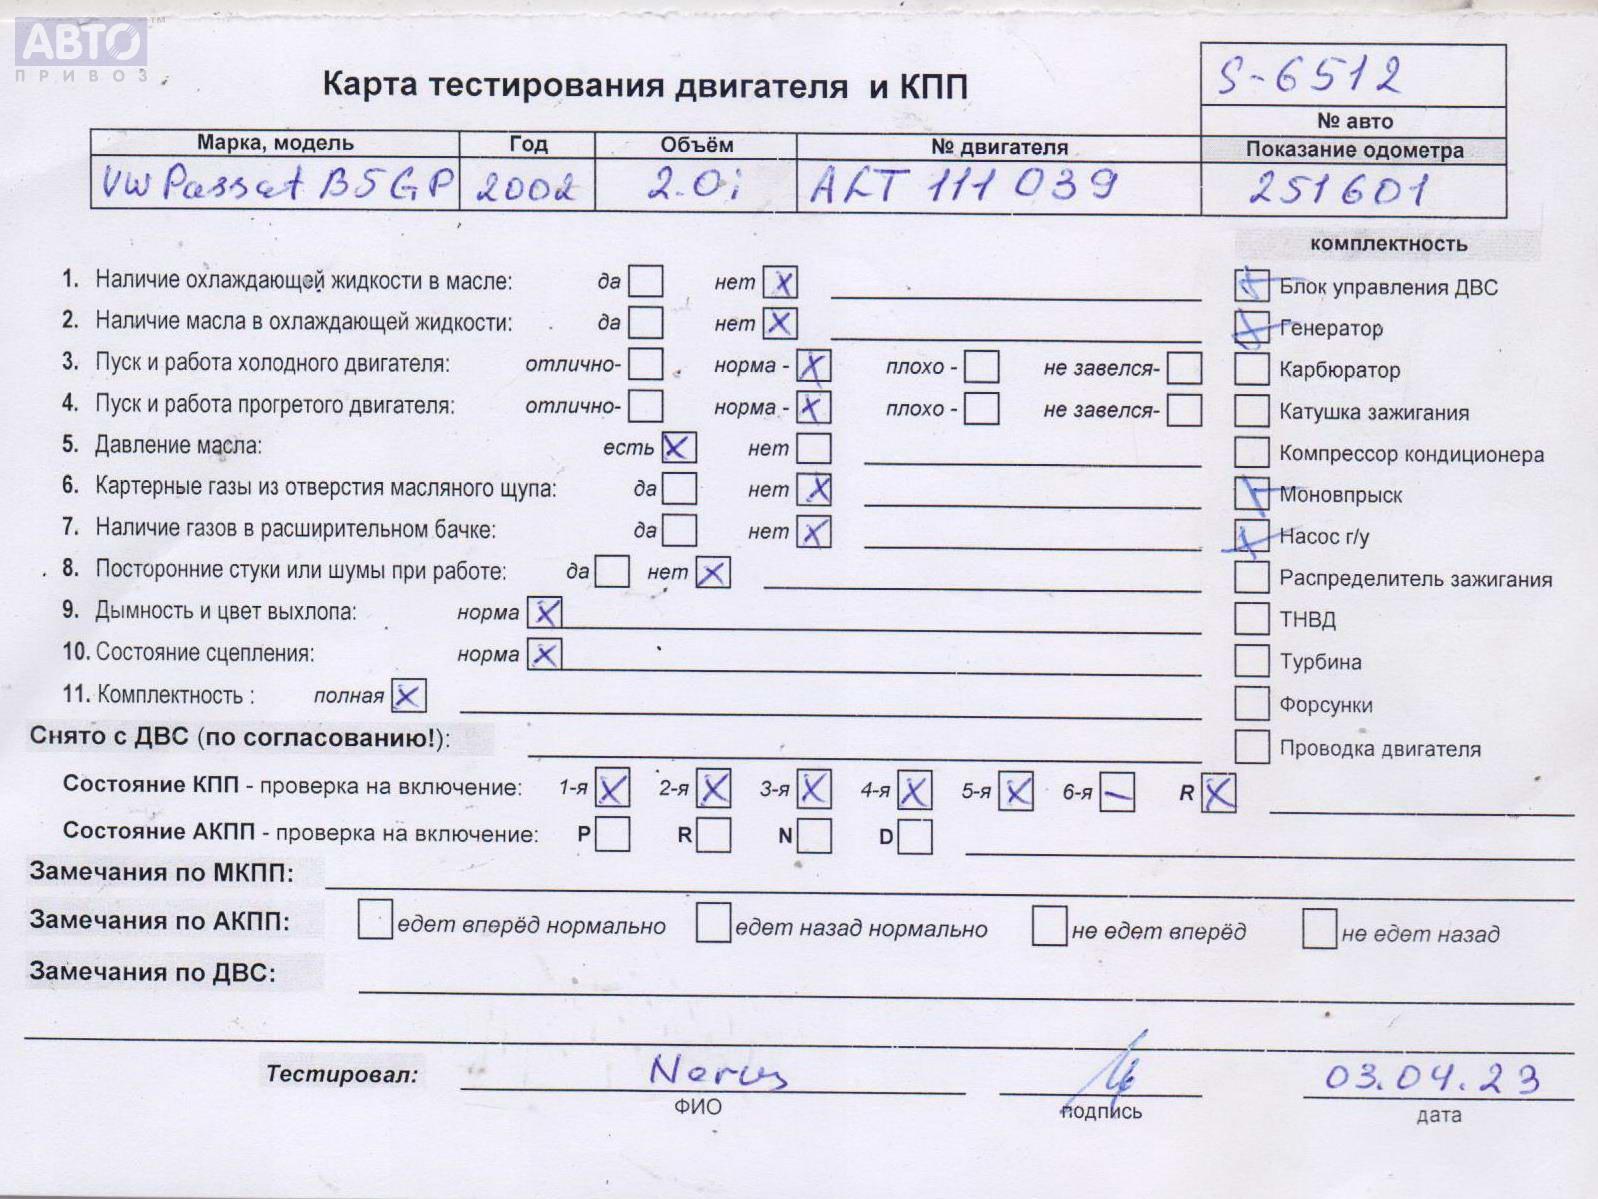 АВТО™
ПРИВОЗ
Карта тестирования двигателя и КПП
S-6512
№ авто
Марка, модель Год Объём № двигателя Показание одометра
VW Passat B5 GP 2002 2.0i ALT 111 039 251601
комплектность
1. Наличие охлаждающей жидкости в масле: да нет X
Блок управления ДВС
2. Наличие масла в охлаждающей жидкости: да нет X
Генератор
3. Пуск и работа холодного двигателя: отлично- норма - X плохо - не завелся-
Карбюратор
4. Пуск и работа прогретого двигателя: отлично- норма - X плохо - не завелся-
Катушка зажигания
5. Давление масла: есть X нет
Компрессор кондиционера
6. Картерные газы из отверстия масляного щупа: да нет X
Моновпрыск
7. Наличие газов в расширительном бачке: да нет X
Насос г/у
8. Посторонние стуки или шумы при работе: да нет X
Распределитель зажигания
9. Дымность и цвет выхлопа: норма X
ТНВД
10. Состояние сцепления: норма X
Турбина
11. Комплектность : полная X
Форсунки
Снято с ДВС (по согласованию!):
Проводка двигателя
Состояние КПП - проверка на включение: 1-я X 2-я X 3-я X 4-я X 5-я X 6-я – R X
Состояние АКПП - проверка на включение: P R N D
Замечания по МКПП:
Замечания по АКПП: едет вперёд нормально едет назад нормально не едет вперёд не едет назад
Замечания по ДВС:
Тестировал: 03.04.23
ФИО подпись дата